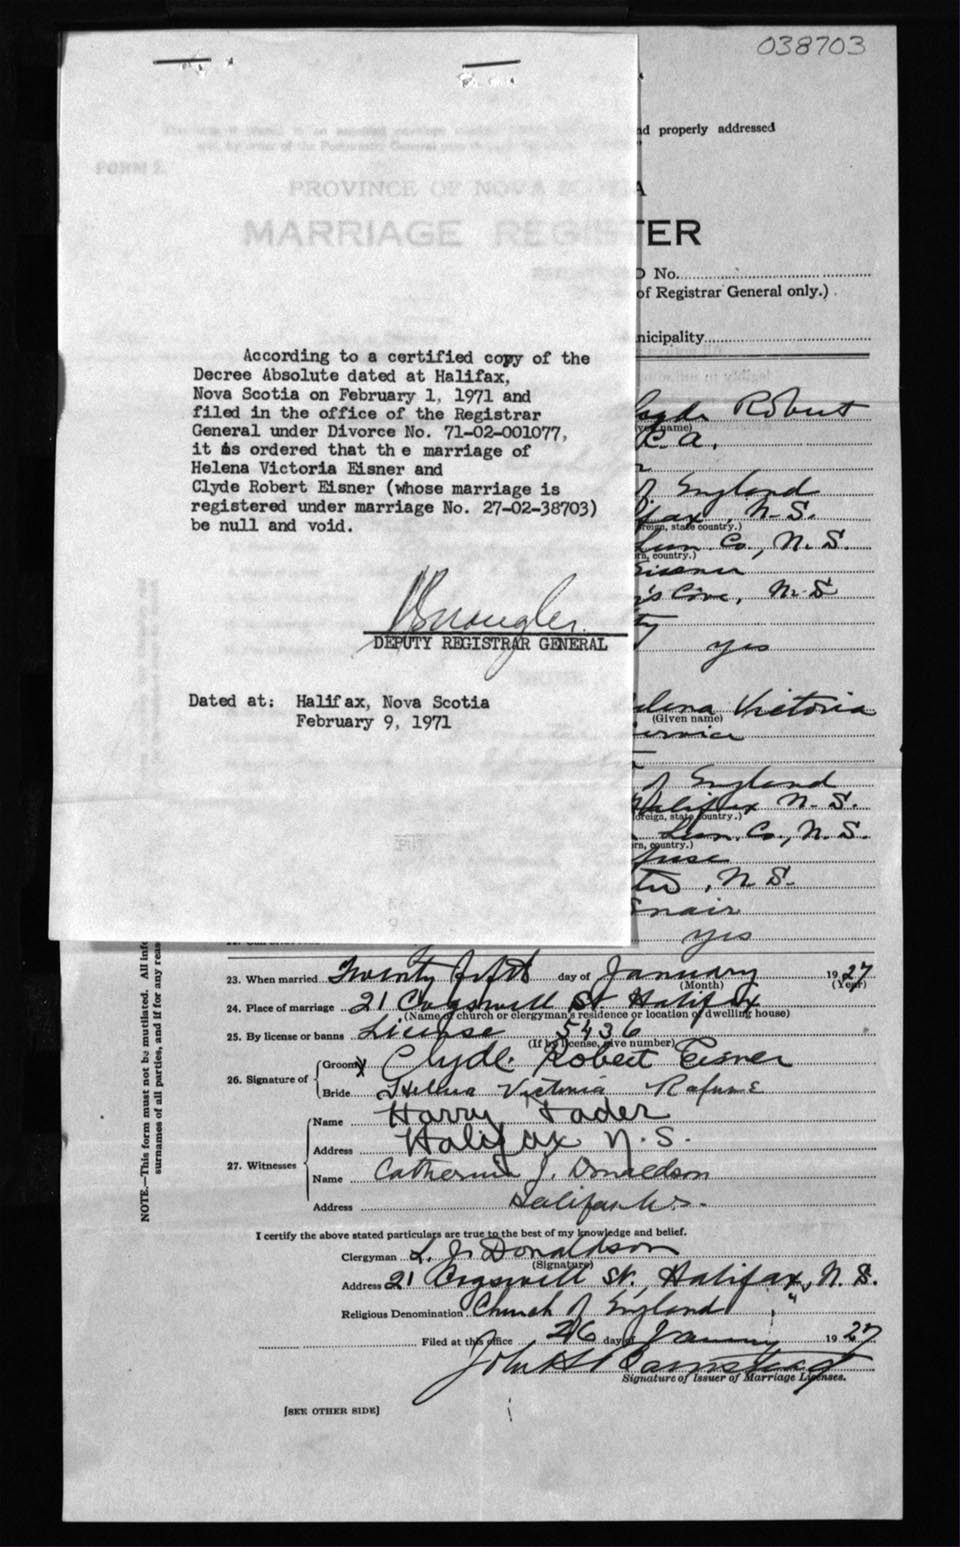 038703
nd properly addressed
FORM 2.
PROVINCE OF NOVA SCOTIA
MARRIAGE REGISTER
No.
of Registrar General only.)
nicipality
According to a certified copy of the
Decree Absolute dated at Halifax,
Nova Scotia on February 1, 1971 and
filed in the office of the Registrar
General under Divorce No. 71-02-001077,
it is ordered that the marriage of
Helena Victoria Eisner and
Clyde Robert Eisner (whose marriage is
registered under marriage No. 27-02-38703)
be null and void.
DEPUTY REGISTRAR GENERAL
Dated at: Halifax, Nova Scotia
February 9, 1971
lyde Robert
name)
R.
of England
lifax, N.S.
reign, state country.)
Lun. Co., N.S.
rn, country.)
Eisner
's Cove, N.S
ty
yes
elena Victoria
(Given name)
ervice
of England
Halifax N.S.
oreign, state country.)
Lun. Co., N.S.
rn, country.)
fuse
ter, N.S.
snair
yes
23. When married Twenty fifth day of January 1927
(Month) (Year)
24. Place of marriage 21 Cogswell St. Halifax
(Name of church or clergyman's residence or location of dwelling house)
25. By license or banns License 5436
(If by license, give number)
26. Signature of Groom X Clyde Robert Eisner
Bride Hellena Victoria Rafuse
27. Witnesses Name Harry Fader
Address Halifax N.S.
Name Catherine J. Donaldson
Address Halifax N.S.
I certify the above stated particulars are true to the best of my knowledge and belief.
Clergyman L. J. Donaldson
(Signature)
Address 21 Cogswell St., Halifax, N.S.
Religious Denomination Church of England
Filed at this office 26 day of January 1927
John H Barnstead
Signature of Issuer of Marriage Licenses.
[SEE OTHER SIDE]
NOTE.—This form must not be mutilated. All info
surnames of all parties, and if for any reas